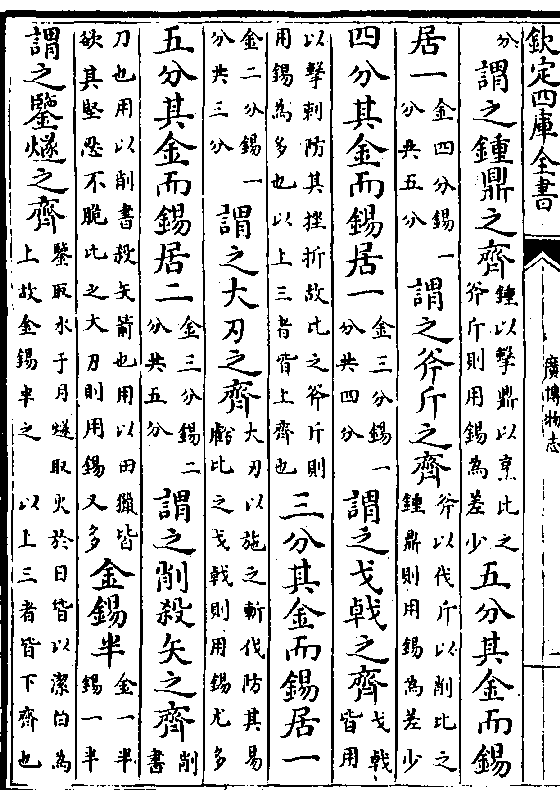 欽定四庫全書
廣博物志
分謂之鍾鼎之齊鍾以擊鼎以烹比之斧斤則用錫為差少五分其金而錫
居一金四分錫一分共五分謂之斧斤之齊斧以伐斤以削比之鍾鼎則用錫為差少
四分其金而錫居一金三分錫一分共四分謂之戈戟之齊戈戟皆用
以擊刺防其挫折故比之斧斤則用錫為多也以上三者皆上齊也三分其金而錫居一
金二分錫一分共三分謂之大刃之齊大刃以施之斬伐防其易虧比之戈戟則用錫尤多
五分其金而錫居二金三分錫二分共五分謂之削殺矢之齊削書
刀也用以削書殺矢箭也用以田獵皆欲其堅忍不脆比之大刃則用錫又多金錫半金一半錫一半
謂之鑒燧之齊鑒取水于月燧取火於日皆以潔白為上故金錫半之 以上三者皆下齊也